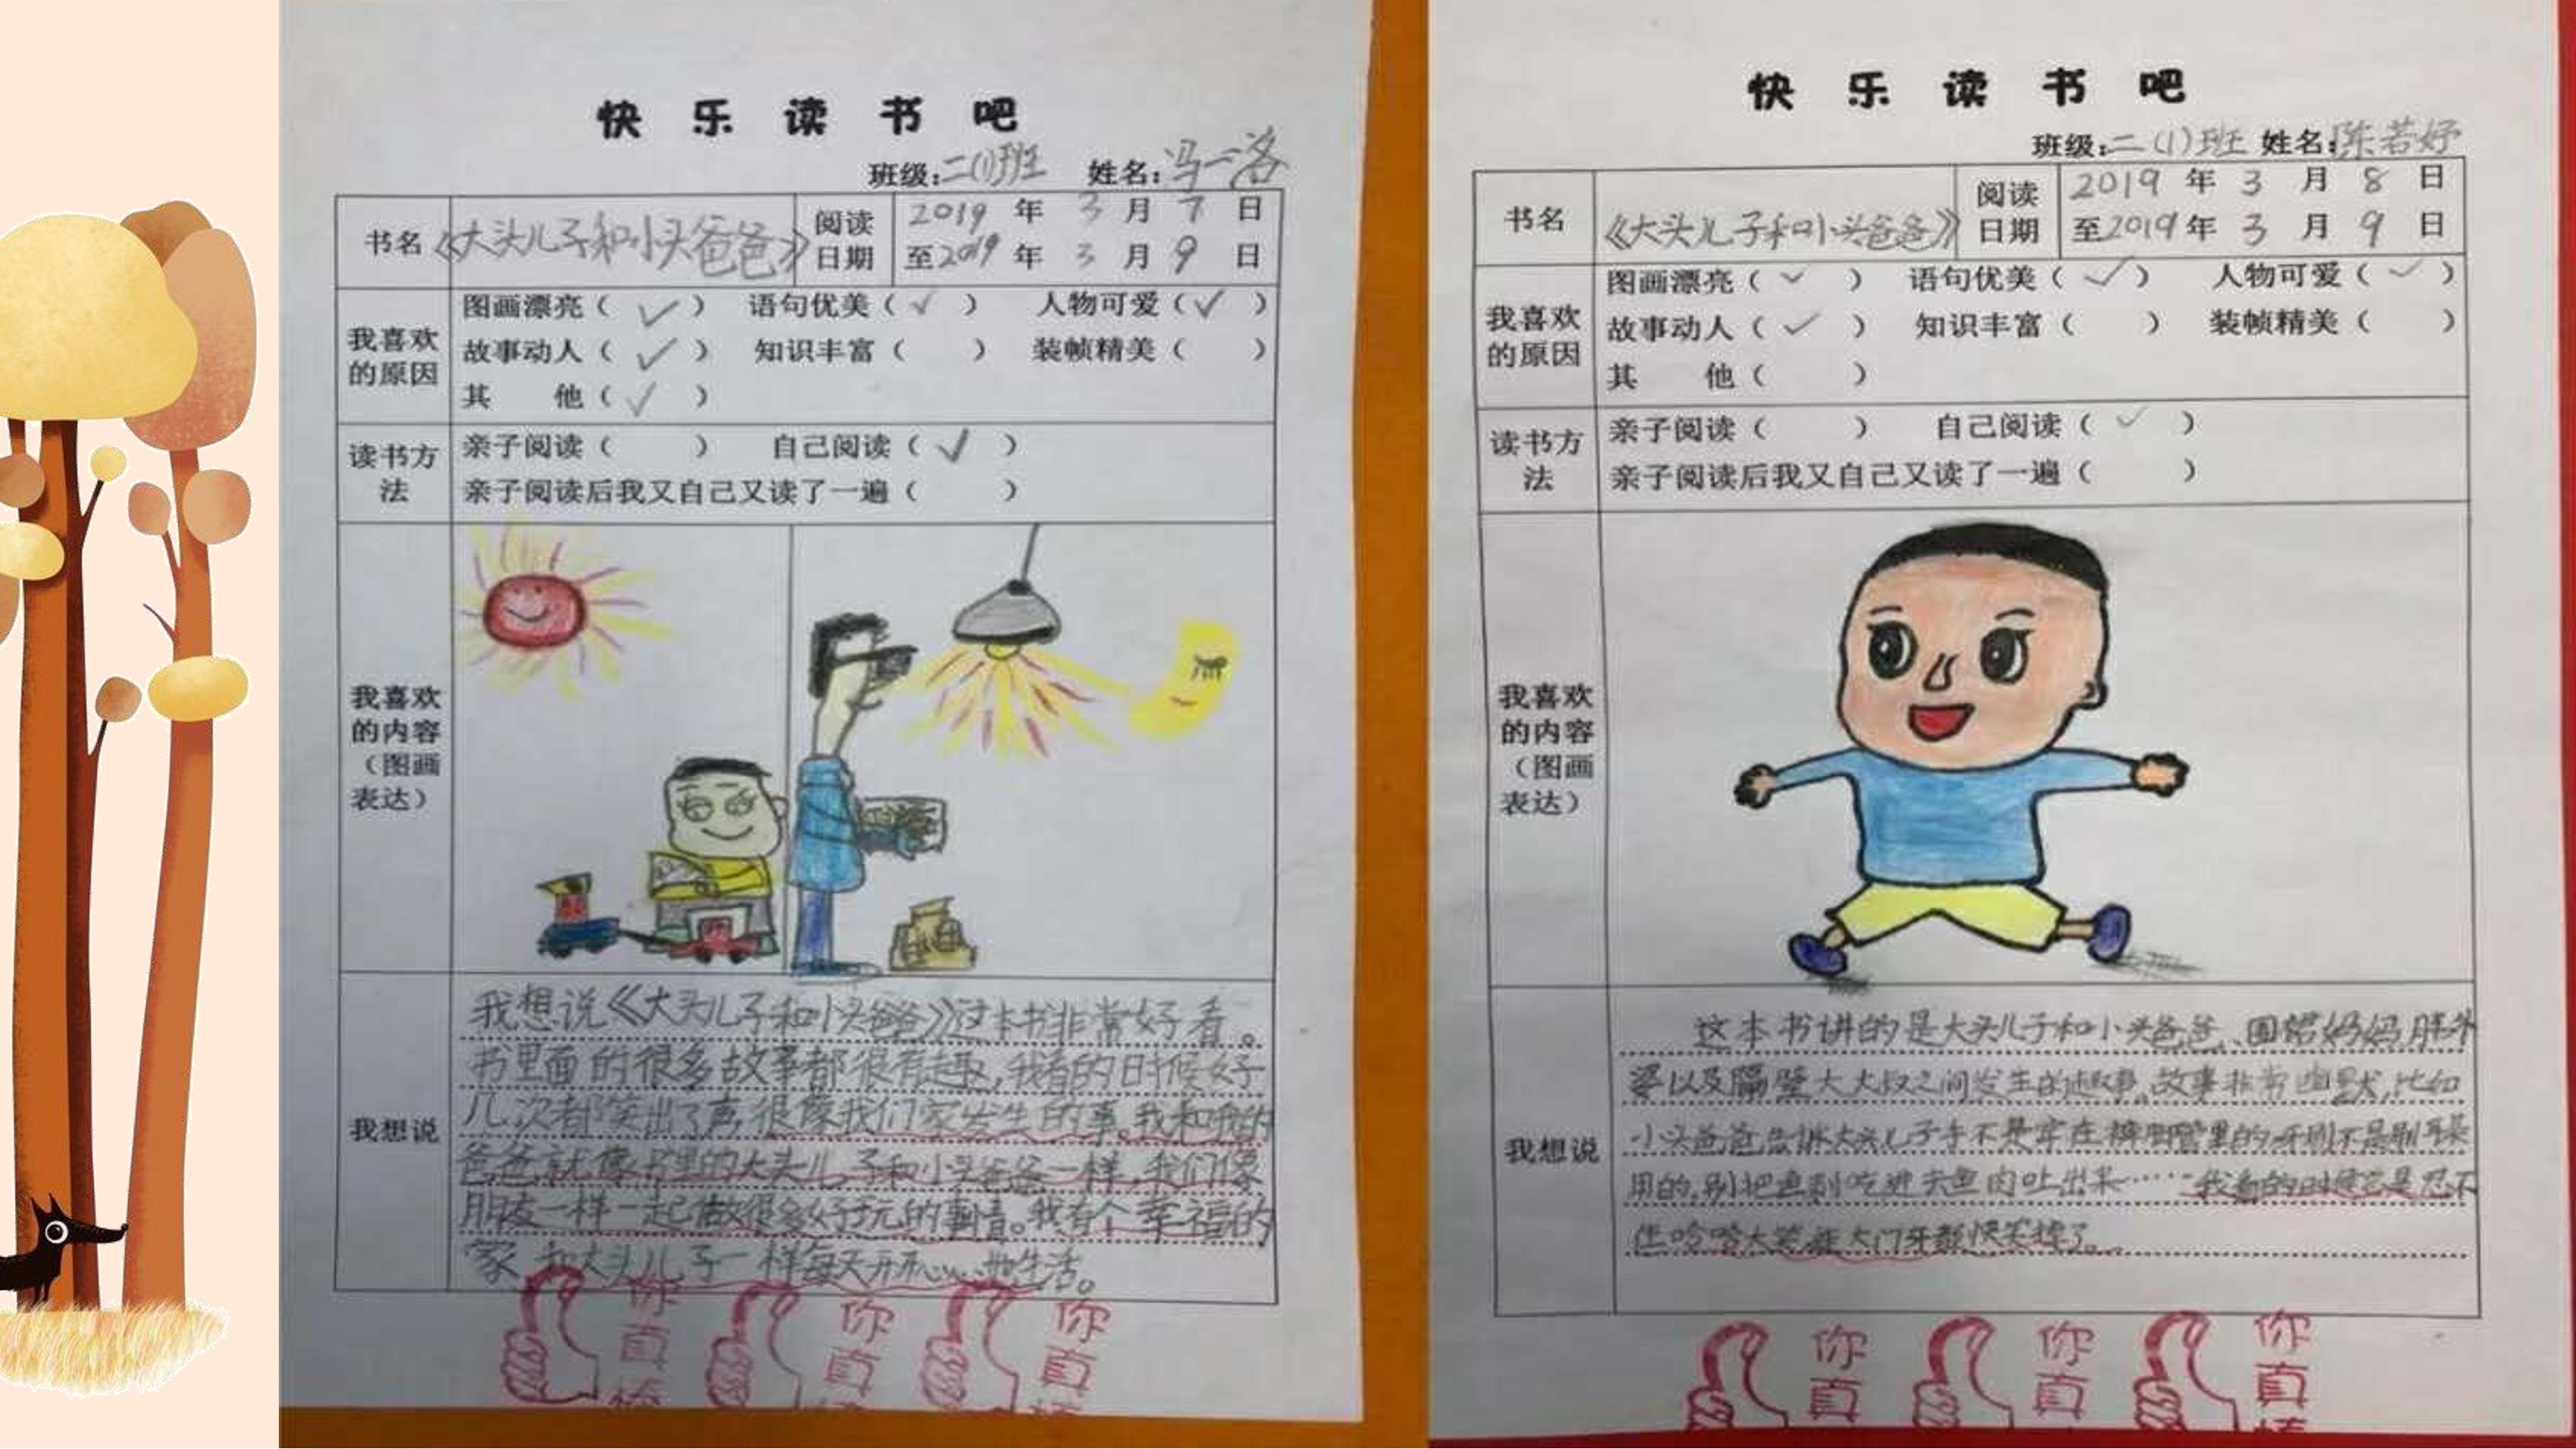 快乐读书吧
班级:二(1)班 姓名:冯一洛
书名 《大头儿子和小头爸爸》 阅读日期 2019年3月7日
至2019年3月9日
我喜欢的原因
图画漂亮(✓) 语句优美(✓) 人物可爱(✓)
故事动人(✓) 知识丰富( ) 装帧精美( )
其他(✓)
读书方法
亲子阅读( ) 自己阅读(✓)
亲子阅读后我又自己又读了一遍( )
我喜欢的内容(图画表达)
我想说
我想说《大头儿子和小头爸爸》这本书非常好看。
书里面的很多故事都很有趣,我看的时候好
几次都笑出了声,很像我们家发生的事。我和我的
爸爸就像书里的大头儿子和小头爸爸一样,我们像
朋友一样一起做很多好玩的事情。我有个幸福的
家,和大头儿子一样每天开开心心地生活。
你真
你真
你真
快乐读书吧
班级:二(1)班 姓名:陈若妤
书名 《大头儿子和小头爸爸》 阅读日期 2019年3月8日
至2019年3月9日
我喜欢的原因
图画漂亮(✓) 语句优美(✓) 人物可爱(✓)
故事动人(✓) 知识丰富( ) 装帧精美( )
其他( )
读书方法
亲子阅读( ) 自己阅读(✓)
亲子阅读后我又自己又读了一遍( )
我喜欢的内容(图画表达)
我想说
这本书讲的是大头儿子和小头爸爸、围裙妈妈
婆以及隔壁大大叔之间发生的趣事,故事非常幽默,比如
小头爸爸告诉大头儿子手不是穿在裤脚管里的,牙刷不是刷
用的,别把鱼刺吃进去鱼肉吐出来……我看的时候总是忍不
住哈哈大笑,连大门牙都快笑掉了。
你真
你真
你真